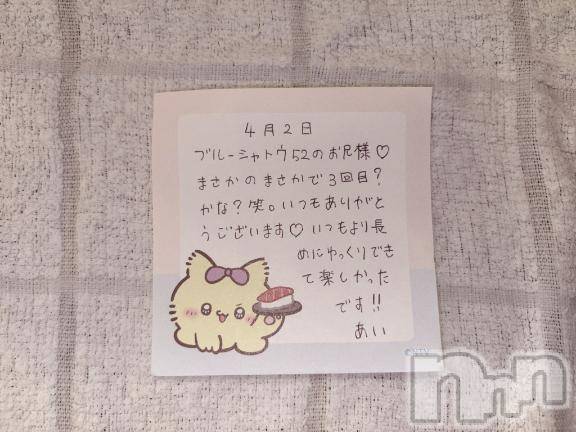 4月2日
ブルーシャトウ52のお兄様♡
まさかのまさかで3回目?
かな?笑。いつもありがと
うございます♡いつもより長
めにゆっくりでき
て楽しかった
です!!
あい
nnn